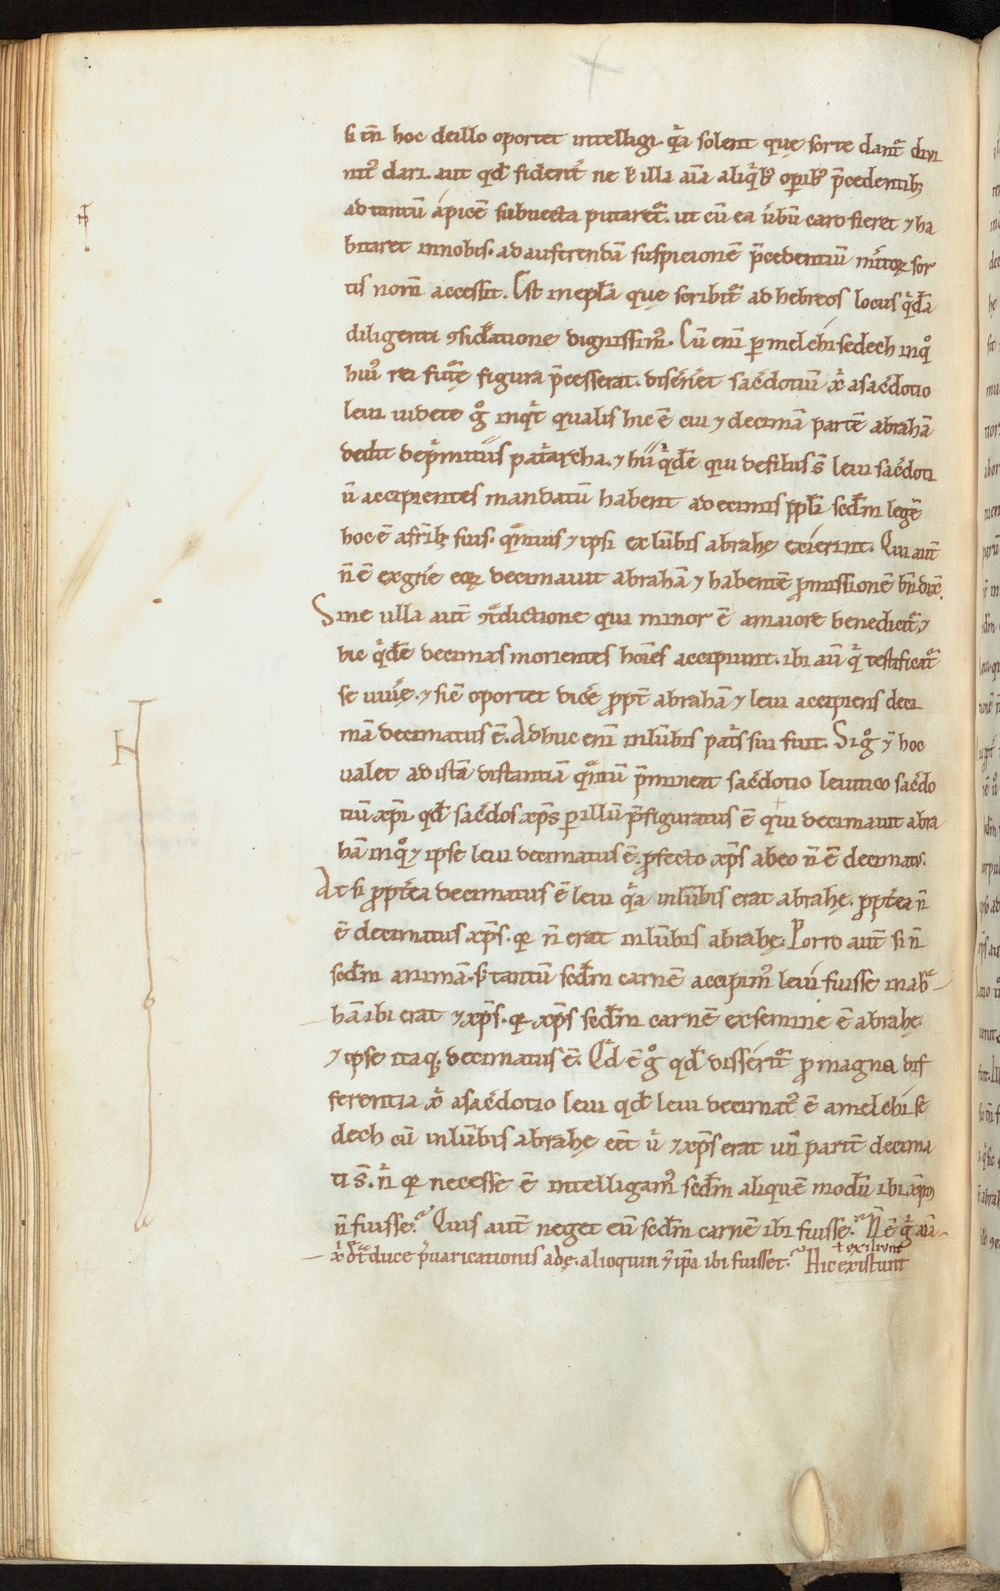 si tn̄ hoc deillo oportet intelligi. q̇a solent que sorte dant᷑ divi
nit᷑ dari. aut qd̄ fident᷑ ne ł illa aīa aliq̇b᷒ oꝑib᷒ p̄cedentib;
ad tantū apicē subuecta putaret᷑. ut cū ea ūbū caro fieret ⁊ ha
bitaret innobis. ad auferendā suspicionē p̄cedentiū m̄itoꝝ sor
tis nom̄ accessit. Est inepła que scribit᷑ ad hebreos locus q̇dā
diligenti ꝯsid̄atione dignissim᷒. Cū eni ꝑ melchisedech inq̊
hui᷒ rei futūe figura p̄cesserat. discn̄et sac̄dotiū xp̄i asac̄dotio
leui uidete g̊ inq̇t qualis hic ē cui ⁊ decimā partē abrahā
dedit dep̄mitiis pat̄archa. ⁊ hii q̇dē qui defiliis s̄ leui sac̄doti
ū accipientes mandatū habent ad ecimis ppl̄i scd̄m legē
hoc ē afr̄ib; suis. qm̄uis ⁊ ipsi ex lūbis abrahę exierint. Qui aut̄
n̄ ē exgn̄e eoꝝ decimauit abrahā ⁊ habentē ꝓmissionē bn̄dix̄.
Sine ulla aut̄ ꝯt̄dictione qui minor ē amaiore benedicit᷑. ⁊
hic q̇dē decimas morientes hoīes accipiunt. ibi aū q̇ testificat᷑
se uiuē. ⁊ sic̄ oportet dicē ꝓpt̄ abrahā ⁊ leui accipiens deci
mā decimatus ē. Adhuc eni inlūbis pat̄s sui fuit. Si g̊ ⁊ hoc
ualet ad istā distantiā qn̄tū p̄minent sac̄dotio leuitico sac̄do
tiū xp̄i. qd̄ sac̄dos xp̄s ꝑ illū p̄figuratus ē qui decimauit abra
hā inq̊ ⁊ ipse leui decimatus ē. ꝓfecto xp̄s ab eo n̄ ē decimatus.
At si ꝓpt̄ea decimatus ē leui q̇a inlūbis erat abrahę. ꝓpt̄ea n̄
ē decimatus xp̄s. qr n̄ erat inlūbis abrahę. Porro aut̄ si n̄
scd̄m animā. s; tantū scd̄m carnē accipim᷒ leui fuisse in ab̄
hā ibi erat ⁊ xp̄s. qr xp̄s scd̄m carnē exsemine ē abrahę.
⁊ ipse itaq; decimatus ē. Qd̄ ē g̊ qd̄ disserit᷑ ꝓ magna dif
ferentia xp̄i asac̄dotio leui qd̄ leui decimat᷒ ē amelchise
dech cū inlūbis abrahę eēt ū ⁊ xp̄s erat un̄ parit̄ decima
ti s̄. n̄ qr necesse ē intelligam᷒ scd̄m aliquē modū ibi xp̄m
n̄ fuisse. Quis aut̄ neget eū scd̄m carnē ibi fuisse. N̄ ē g̊ aīa
xp̄i detduce p̄uaricationis adę. alioquin ⁊ ip̄a ibi fuisset. Hic existunt
ł exiliunt